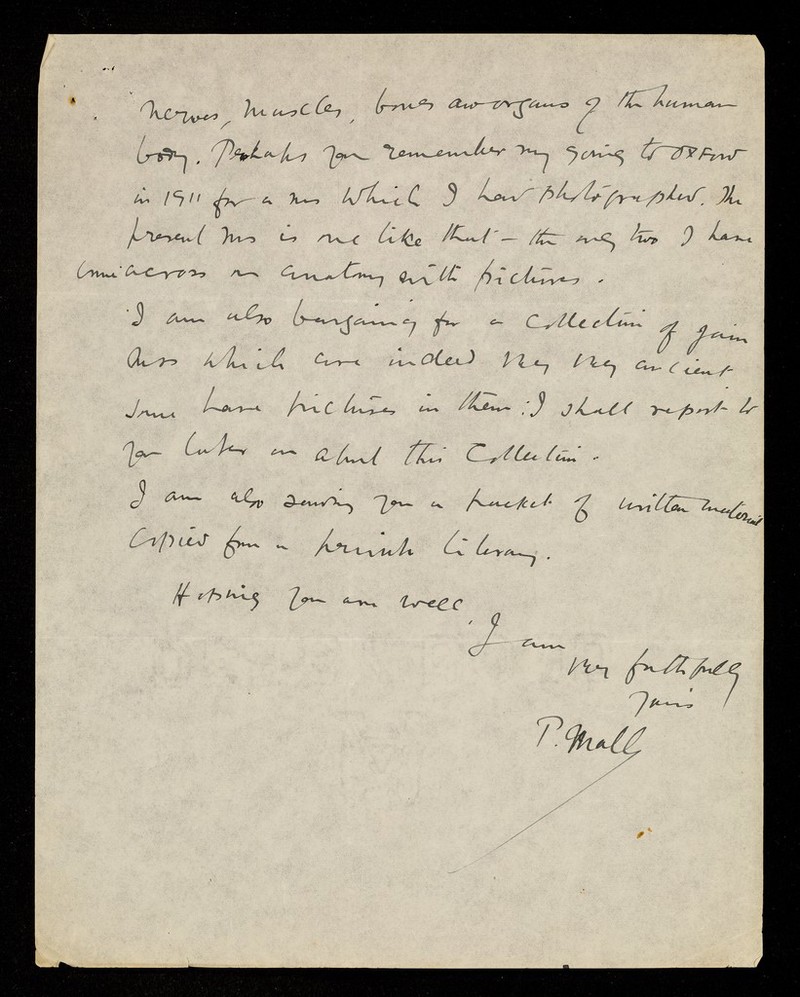 nerves, muscles, bones and organs of the human
body. Perhaps you remember my going to Oxford
in 1911 for a ms which I had photographed. The
present ms is one like that – the only two I have
come across on anatomy with pictures.
I am also bargaining for a collection of Jain
mss which are indeed very very ancient
some have pictures in them: I shall report to
you later on about this collection.
I am also sending you a packet of written material
copied from a private library.
Hoping you are well,
I am
very faithfully
yours
P. Mall